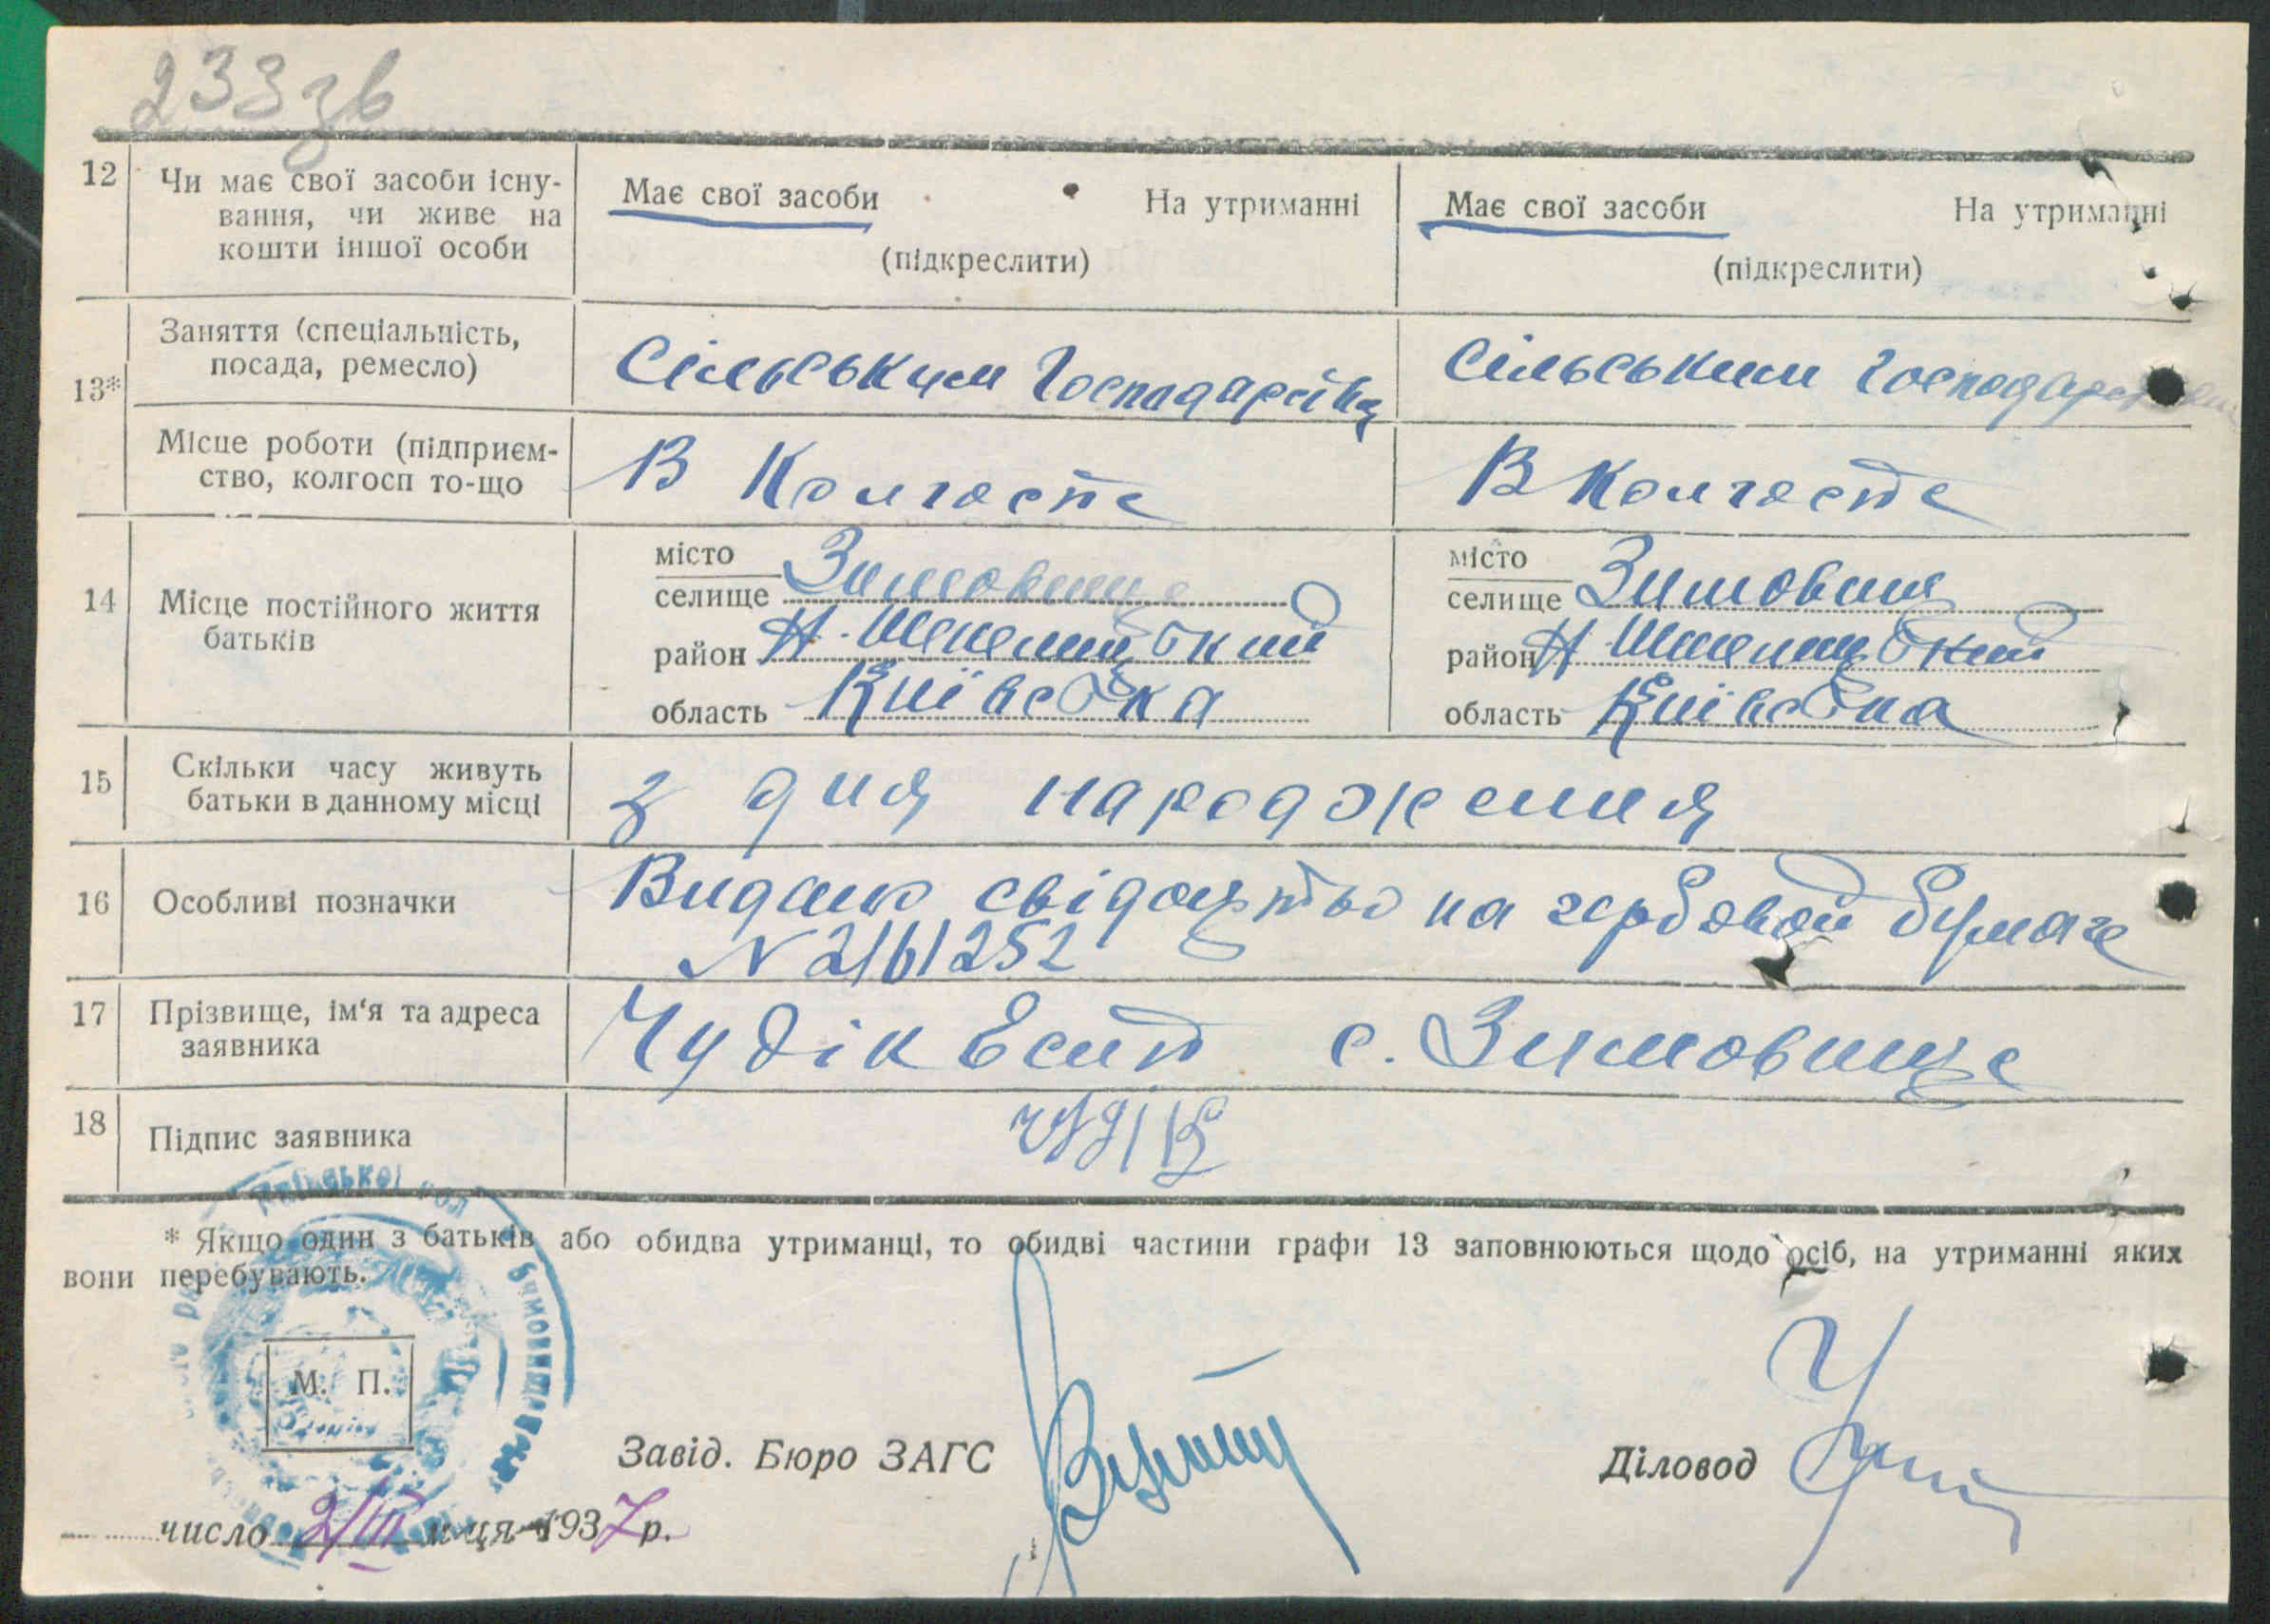 233 зв
12 Чи має свої засоби існу-
вання, чи живе на
кошти іншої особи
Має свої засоби На утриманні
(підкреслити)
Має свої засоби На утриманні
(підкреслити)
13*
Заняття (спеціальність,
посада, ремесло)
Сільським Господарством
Сільським Господарством
Місце роботи (підприєм-
ство, колгосп то-що
В Колгоспе
В Колгоспе
14 Місце постійного життя
батьків
місто
селище Зимовище
район Н-Шепелицький
область Київська
місто
селище Зимовище
район Н Шепелицький
область Київська
15 Скільки часу живуть
батьки в данному місці
з дня народження
16 Особливі позначки
Видано свідоцтво на гербовой бумаге
N 2161252
17 Прізвище, ім'я та адреса
заявника
Чудік Есип с. Зимовище
18 Підпис заявника
* Якщо один з батьків або обидва утриманці, то обидві частини графи 13 заповнюються щодо осіб, на утриманні яких
вони перебувають.
М. П.
Завід. Бюро ЗАГС
Діловод
число 2/III м-ця 1937 р.